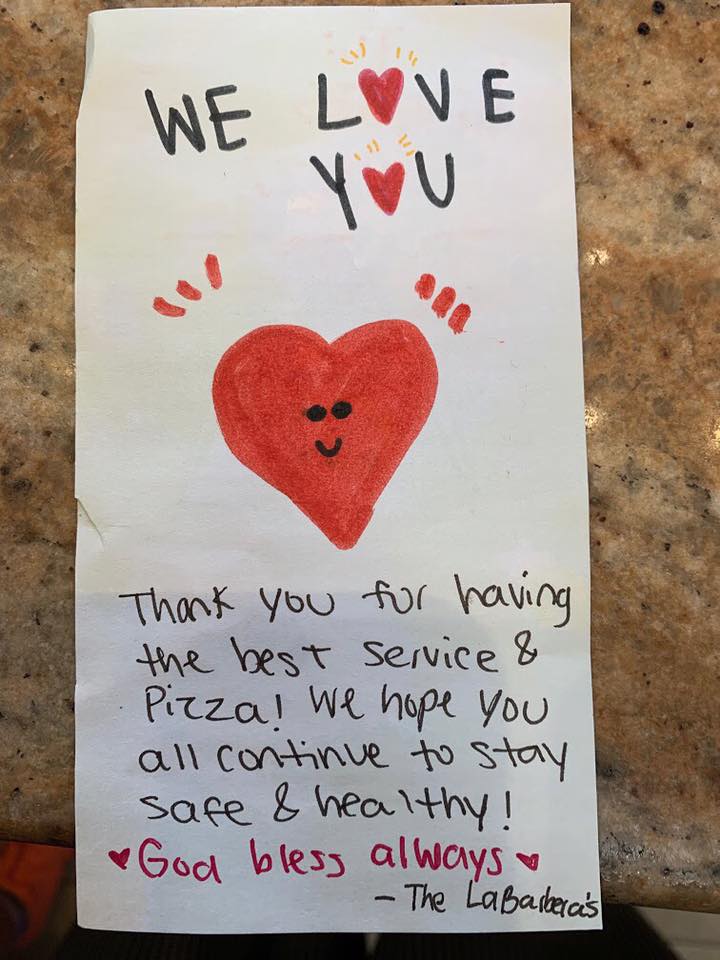 WE LOVE
YOU
Thank you for having
the best service &
Pizza! We hope you
all continue to stay
safe & healthy!
♥God bless always♥
- The LaBarbera's